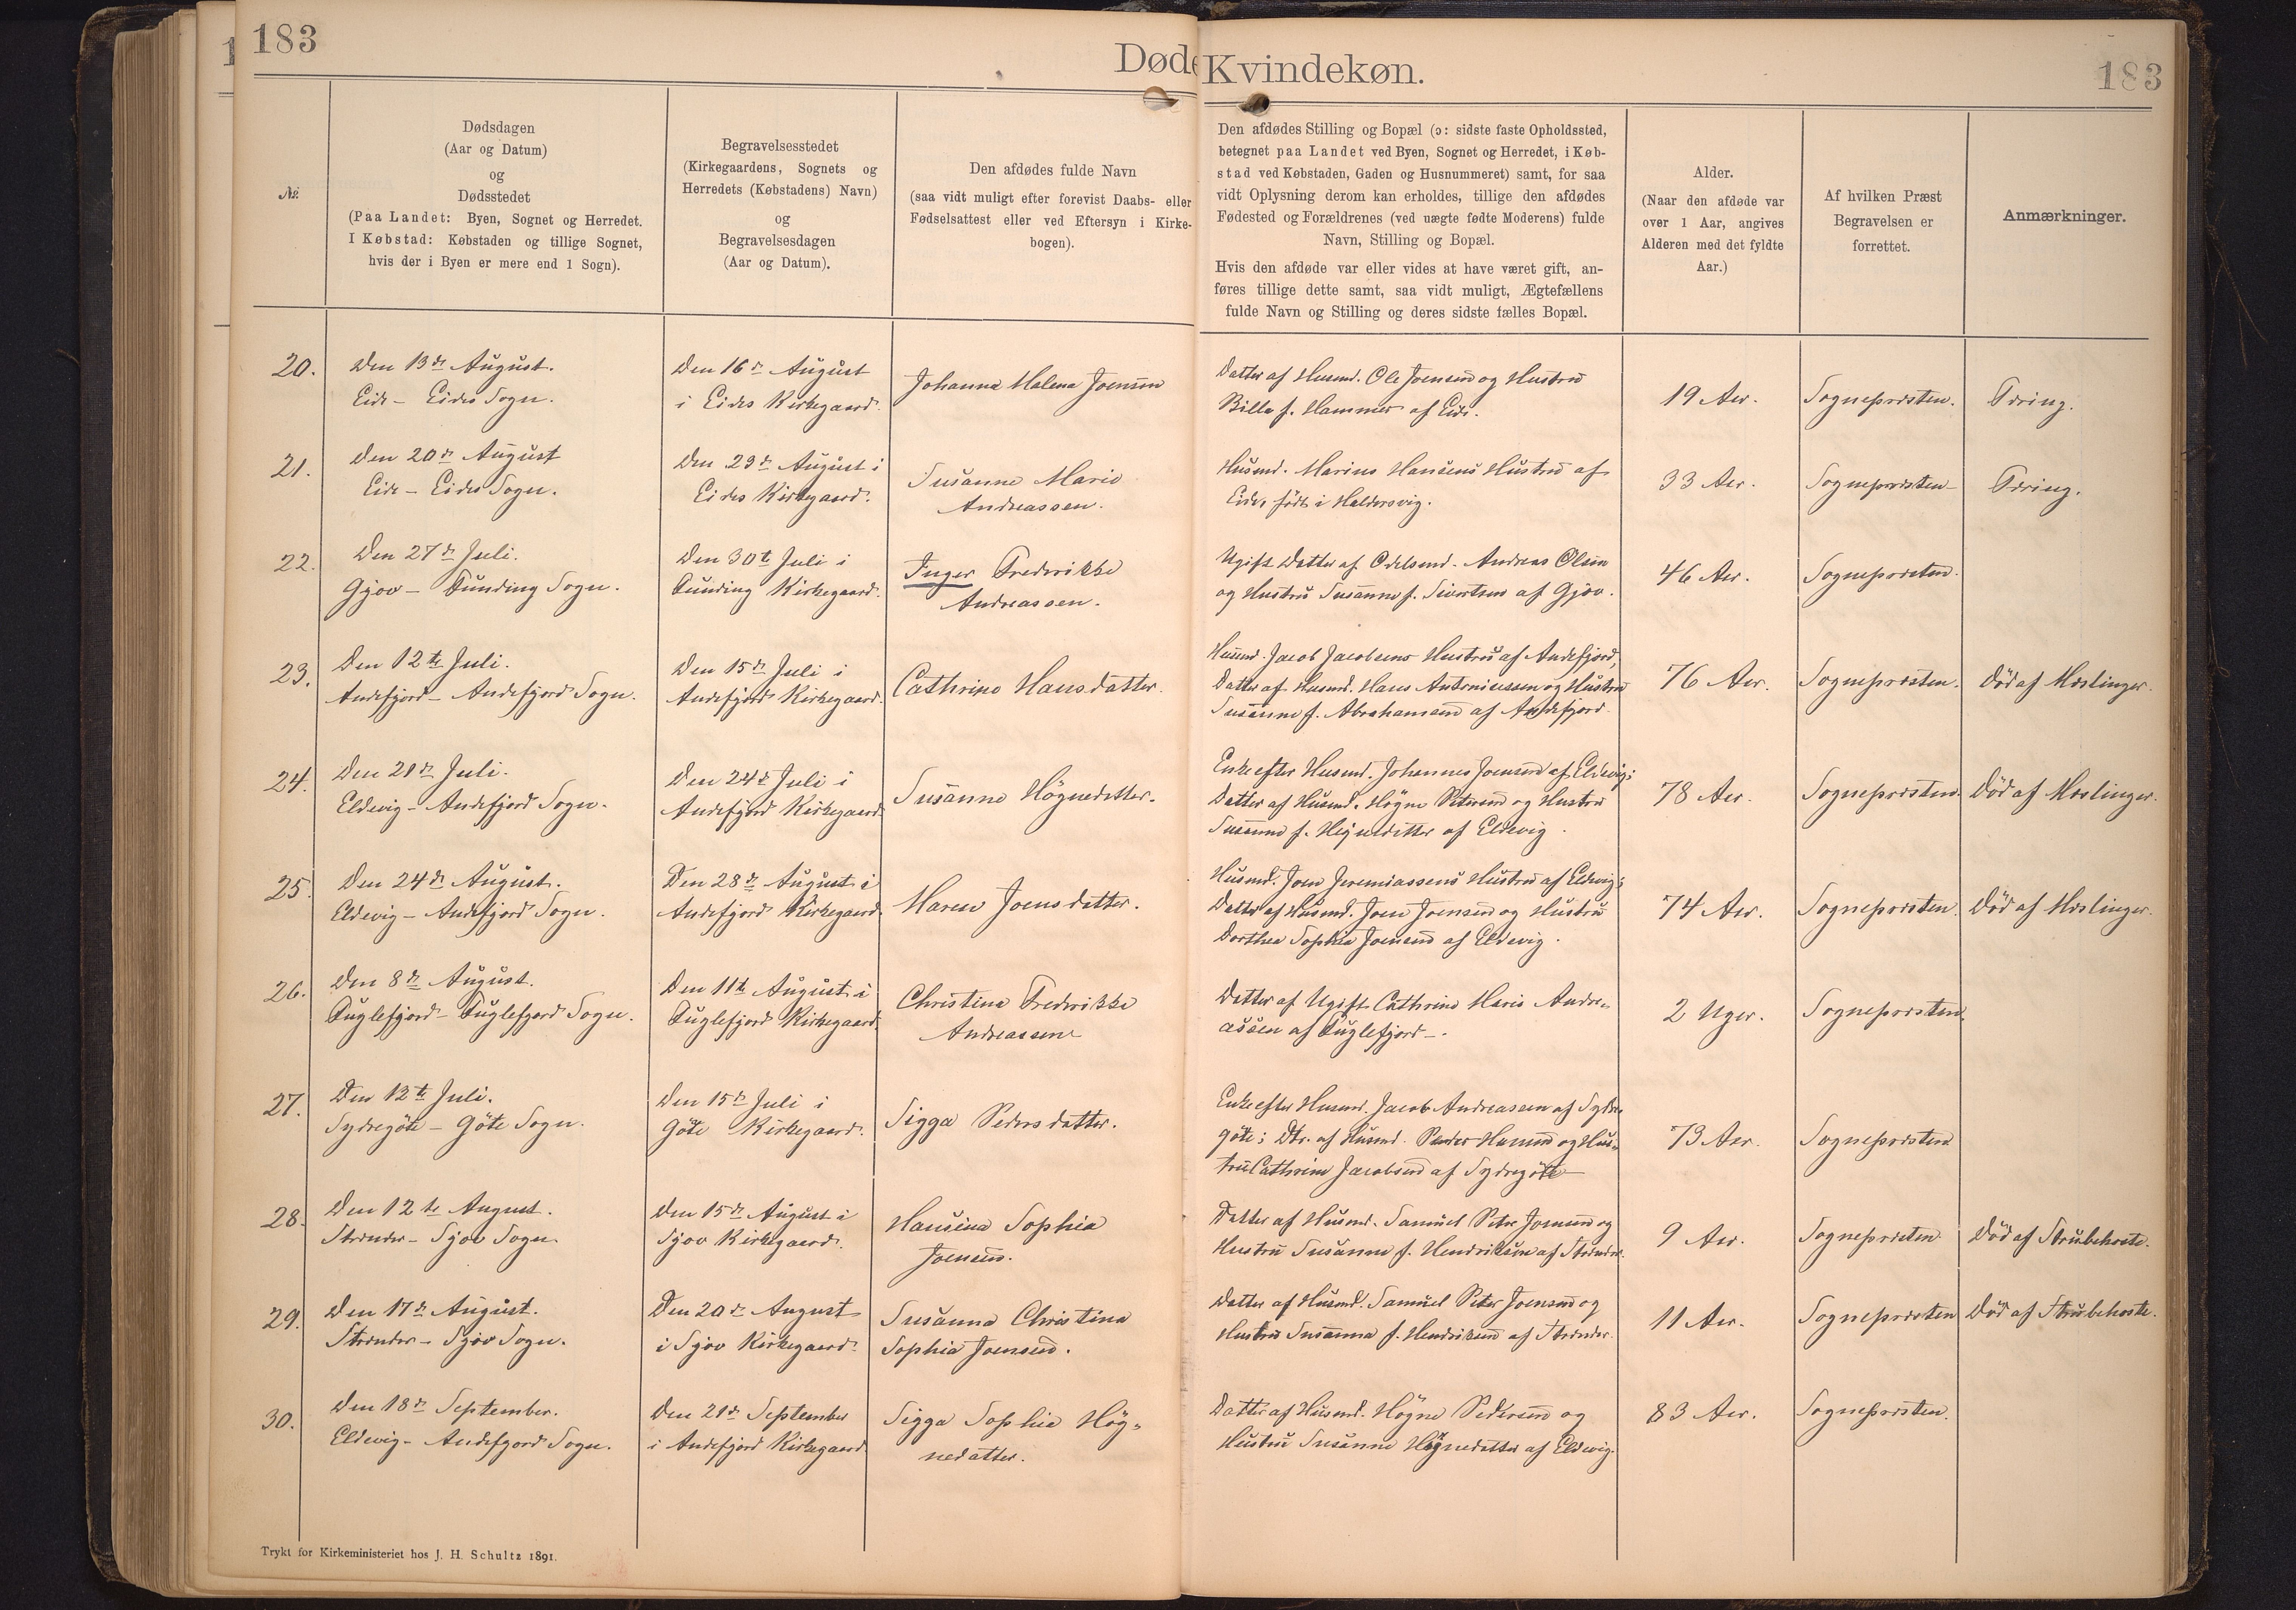 183
Døde
Kvindekøn.
183
№
Dødsdagen
(Aar og Datum)
og
Dødsstedet
(Paa Landet: Byen, Sognet og Herredet.
I Købstad: Købstaden og tillige Sognet,
hvis der i Byen er mere end 1 Sogn).
Begravelsesstedet
(Kirkegaardens, Sognets og
Herredets (Købstadens) Navn)
og
Begravelsesdagen
(Aar og Datum).
Den afdødes fulde Navn
(saa vidt muligt efter forevist Daabs- eller
Fødselsattest eller ved Eftersyn i Kirke-
bogen).
Den afdødes Stilling og Bopæl (ɔ: sidste faste Opholdssted,
betegnet paa Landet ved Byen, Sognet og Herredet, i Køb-
stad ved Købstaden, Gaden og Husnummeret) samt, for saa
vidt Oplysning derom kan erholdes, tillige den afdødes
Fødested og Forældrenes (ved uægte fødte Moderens) fulde
Navn, Stilling og Bopæl.
Hvis den afdøde var eller vides at have været gift, an-
føres tillige dette samt, saa vidt muligt, Ægtefællens
fulde Navn og Stilling og deres sidste fælles Bopæl.
Alder.
(Naar den afdøde var
over 1 Aar, angives
Alderen med det fyldte
Aar.)
Af hvilken Præst
Begravelsen er
forrettet.
Anmærkninger.
20.
Den 13de August.
Eide - Eides Sogn.
Den 16de August
i Eides Kirkegaard.
Johanne Malena Joensen
Datter af Husmd. Ole Joensen og Hustru
Billa f. Hammer af Eide.
19 Aar.
Sognepræsten.
Tæring.
21.
Den 20de August
Eide - Eides Sogn.
Den 23de August i
Eides Kirkegaard.
Susanne Marie
Andreassen.
Husmd. Marius Hansens Hustru af
Eide, født i Haldersvig.
33 Aar.
Sognepræsten
Tæring.
22.
Den 27de Juli.
Gjov - Funding Sogn.
Den 30te Juli i
Funding Kirkegaard.
Inger Frederikke
Andreassen.
Ugift Datter af Odelsmd. Andreas Olsen
og Hustru Susanne f. Sivertsen af Gjov.
46 Aar.
Sognepræsten.
23.
Den 12te Juli.
Andefjord - Andefjord Sogn.
Den 15de Juli i
Andefjord Kirkegaard.
Cathrine Hansdatter.
Husmd. Jacob Jacobsens Hustru af Andefjord,
Datter af Husmd. Hans Antoniussen og Hustru
Susanne f. Abrahamsen af Andefjord.
76 Aar.
Sognepræsten.
Død af Mæslinger.
24.
Den 21de Juli.
Eldevig - Andefjord Sogn.
Den 24de Juli i
Andefjord Kirkegaard.
Susanne Høgnedatter.
Enke efter Husmd. Johannes Joensen af Eldevig;
Datter af Husmd. Høgne Petersen og Hustru
Susanne f. Høgnedatter af Eldevig.
78 Aar.
Sognepræsten.
Død af Mæslinger.
25.
Den 24de August.
Eldevig - Andefjord Sogn.
Den 28de August i
Andefjord Kirkegaard.
Maren Joensdatter.
Husmd. Joen Jeremiassens Hustru af Eldevig;
Datter af Husmd. Joen Joensen og Hustru
Dorthea Sophia Joensen af Eldevig.
74 Aar.
Sognepræsten.
Død af Mæslinger.
26.
Den 8de August.
Fuglefjord - Fuglefjord Sogn.
Den 11te August i
Fuglefjord Kirkegaard.
Christina Frederikke
Andreassen
Datter af Ugift Cathrine Maria Andre-
assen af Fuglefjord -.
2 Uger.
Sognepræsten.
27.
Den 12te Juli.
Sydregöte - Göte Sogn.
Den 15de Juli i
Göte Kirkegaard.
Sigga Pedersdatter.
Enke efter Husmd. Jacob Andreassen af Sydre-
göte; Dtr. af Husmd. Peder Hansen og Hus-
tru Cathrine Jacobsen af Sydregöte
73 Aar.
Sognepræsten
28.
Den 12te August.
Strænder - Sjov Sogn.
Den 15de August i
Sjov Kirkegaard.
Hansina Sophia
Joensen.
Datter af Husmd. Samuel Peter Joensen og
Hustru Susanne f. Hendriksen af Strænder.
9 Aar.
Sognepræsten
Død af Strubehoste.
29.
Den 17de August.
Strænder - Sjov Sogn.
Den 20de August
i Sjov Kirkegaard.
Susanna Christina
Sophia Joensen.
Datter af Husmd. Samuel Peter Joensen og
Hustru Susanna f. Hendriksen af Strænder.
11 Aar.
Sognepræsten
Død af Strubehoste.
30.
Den 18de September.
Eldevig - Andefjord Sogn.
Den 21de September
i Andefjord Kirkegaard
Sigga Sophia Høg-
nedatter.
Datter af Husmd. Høgne Pedersen og
Hustru Susanne Høgnedatter af Eldevig.
83 Aar.
Sognepræsten.
Trykt for Kirkeministeriet hos J. H. Schultz 1891.